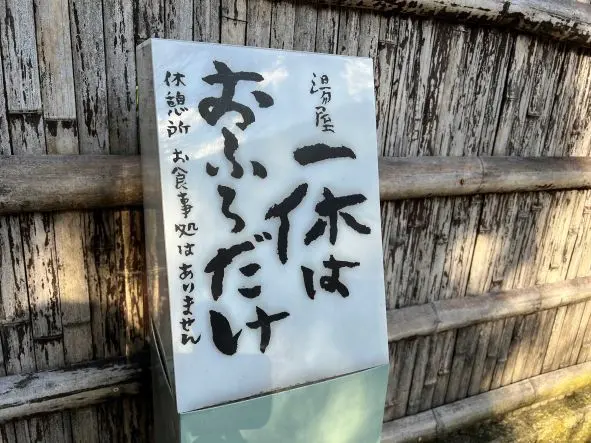 湯屋 一休は
おふろだけ
休憩所 お食事処はありません